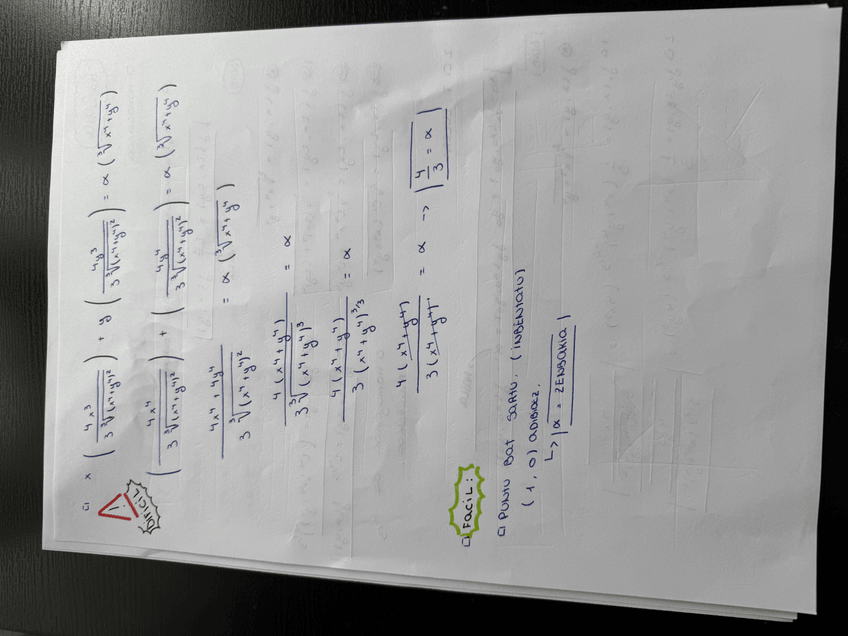 x ( 4x³ / 3 ∛(x⁴+y⁴)² ) + y ( 4y³ / 3 ∛(x⁴+y⁴)² ) = α ( ∛x⁴+y⁴ )
! DIFICIL
( 4x⁴ / 3 ∛(x⁴+y⁴)² ) + ( 4y⁴ / 3 ∛(x⁴+y⁴)² ) = α ( ∛x⁴+y⁴ )
4x⁴ + 4y⁴ / 3 ∛(x⁴+y⁴)² = α ( ∛x⁴+y⁴ )
4 (x⁴+y⁴) / 3 ∛(x⁴+y⁴)³ = α
4 (x⁴+y⁴) / 3 (x⁴+y⁴)^3/3 = α
4 (x⁴+y⁴) / 3 (x⁴+y⁴)¹ = α -> 4/3 = α
FACIL:
PUNTU BAT SARTU. (INBENTATU)
(1, 0) ADIBIDEZ.
↳> α = ZENBAKIA